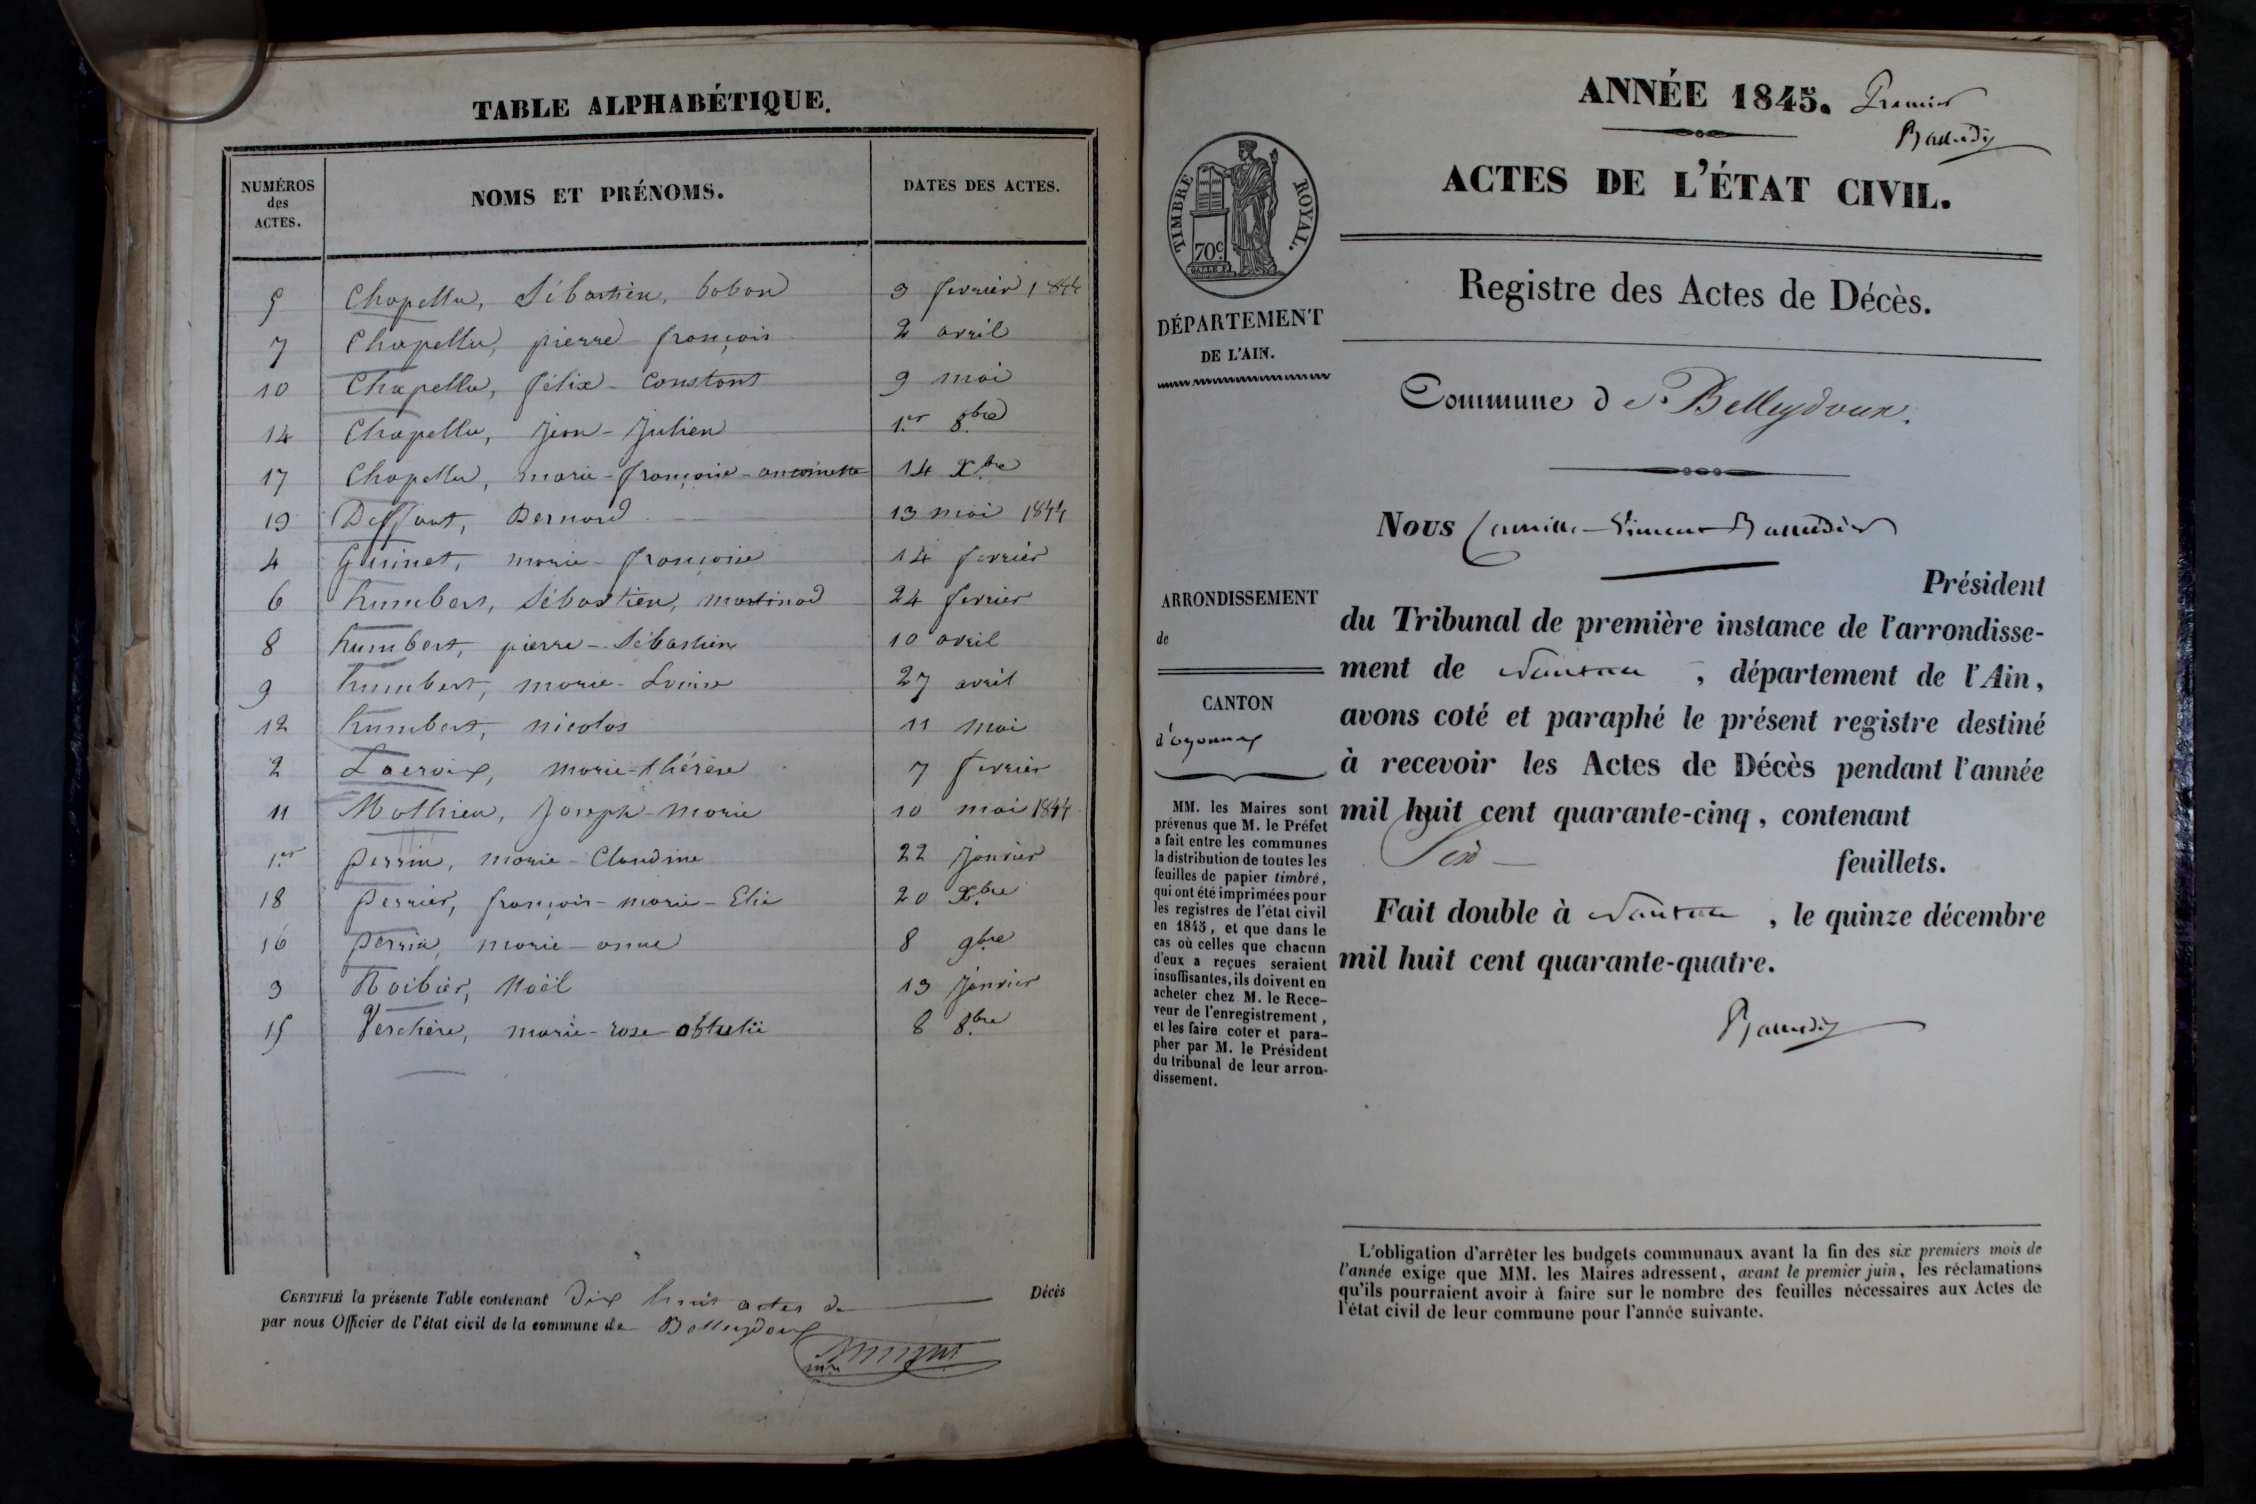 TABLE ALPHABÉTIQUE.
NUMÉROS
des
ACTES.
NOMS ET PRÉNOMS.
DATES DES ACTES.
5 Chapellu, Sébastien, bobon 3 fevrier 1844
7 Chapellu, pierre françois 2 avril
10 Chapellu, félix - Constant 9 mai
14 Chapellu, Jean - Julien 1.er 8.bre
17 Chapellu, marie - françoise - antoinette 14 X.bre
13 Deffant, Bernard 13 mai 1844
4 Guinet, marie - françoise 14 fevrier
6 humbert, Sébastien, martinod 24 fevrier
8 humbert, pierre - Sébastien 10 avril
9 humbert, marie - Louise 27 avril
12 humbert, nicolas 11 mai
2 Lacroix, marie - thérèse 7 fevrier
11 Mathieu, Joseph - marie 10 mai 1844
1.er perrin, marie - Claudine 22 Janvier
18 perrier, françois - marie - Elie 20 X.bre
16 perrin, marie - anne 8 9.bre
3 Noël 13 Janvier
15 Verchère, marie - rose 8 8.bre
CERTIFIÉ la présente Table contenant Dix huit actes de Décès
par nous Officier de l'état civil de la commune de Belleydoux
ANNÉE 1845. Premier
ACTES DE L'ÉTAT CIVIL.
TIMBRE ROYAL.
70c.
Registre des Actes de Décès.
DÉPARTEMENT
DE L'AIN.
Commune de Belleydoux.
Nous Camille - Vincent
Président
ARRONDISSEMENT
de
du Tribunal de première instance de l'arrondisse-
ment de Nantua, département de l'Ain,
CANTON
d'oyonnax
avons coté et paraphé le présent registre destiné
à recevoir les Actes de Décès pendant l'année
mil huit cent quarante-cinq, contenant
Six feuillets.
Fait double à Nantua, le quinze décembre
mil huit cent quarante-quatre.
MM. les Maires sont
prévenus que M. le Préfet
a fait entre les communes
la distribution de toutes les
feuilles de papier timbré,
qui ont été imprimées pour
les registres de l'état civil
en 1845, et que dans le
cas où celles que chacun
d'eux a reçues seraient
insuffisantes, ils doivent en
acheter chez M. le Rece-
veur de l'enregistrement,
et les faire coter et para-
pher par M. le Président
du tribunal de leur arron-
dissement.
L'obligation d'arrêter les budgets communaux avant la fin des six premiers mois de
l'année exige que MM. les Maires adressent, avant le premier juin, les réclamations
qu'ils pourraient avoir à faire sur le nombre des feuilles nécessaires aux Actes de
l'état civil de leur commune pour l'année suivante.